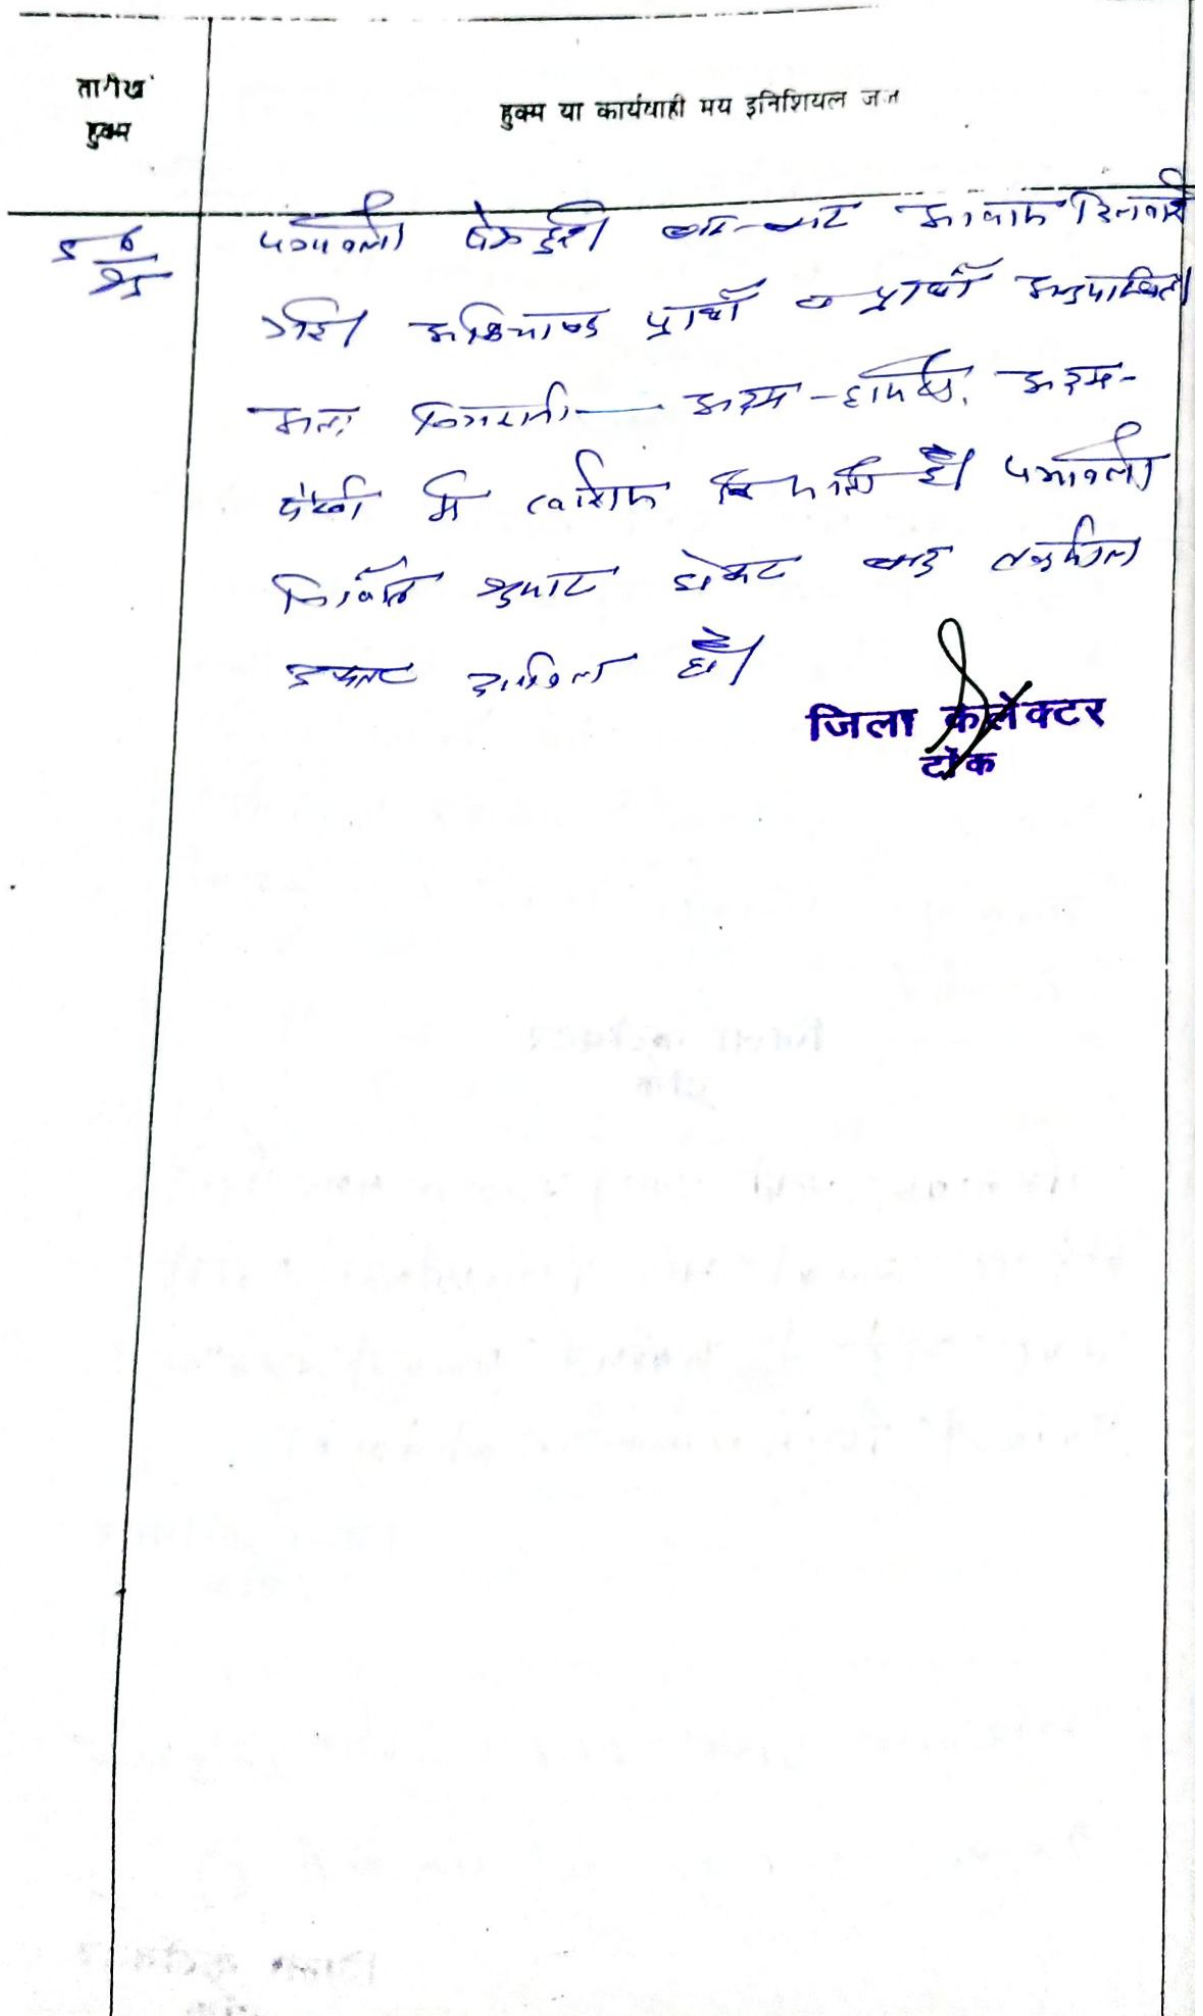 तारीख
हुक्म
हुक्म या कार्यवाही मय इनिशियल जज
5 6/25
पत्रावली पेश हुई। बार-बार आवाज दिलवाई
गई। अभिभाषक प्रार्थी व प्रार्थी अनुपस्थित।
अतः निगरानी अदम-हाजरी, अदम-
पैरवी में खारिज की जाती है। पत्रावली
निर्णित शुमार होकर बाद तकमील
दफ्तर दाखिल हो।
जिला कलेक्टर
टोंक